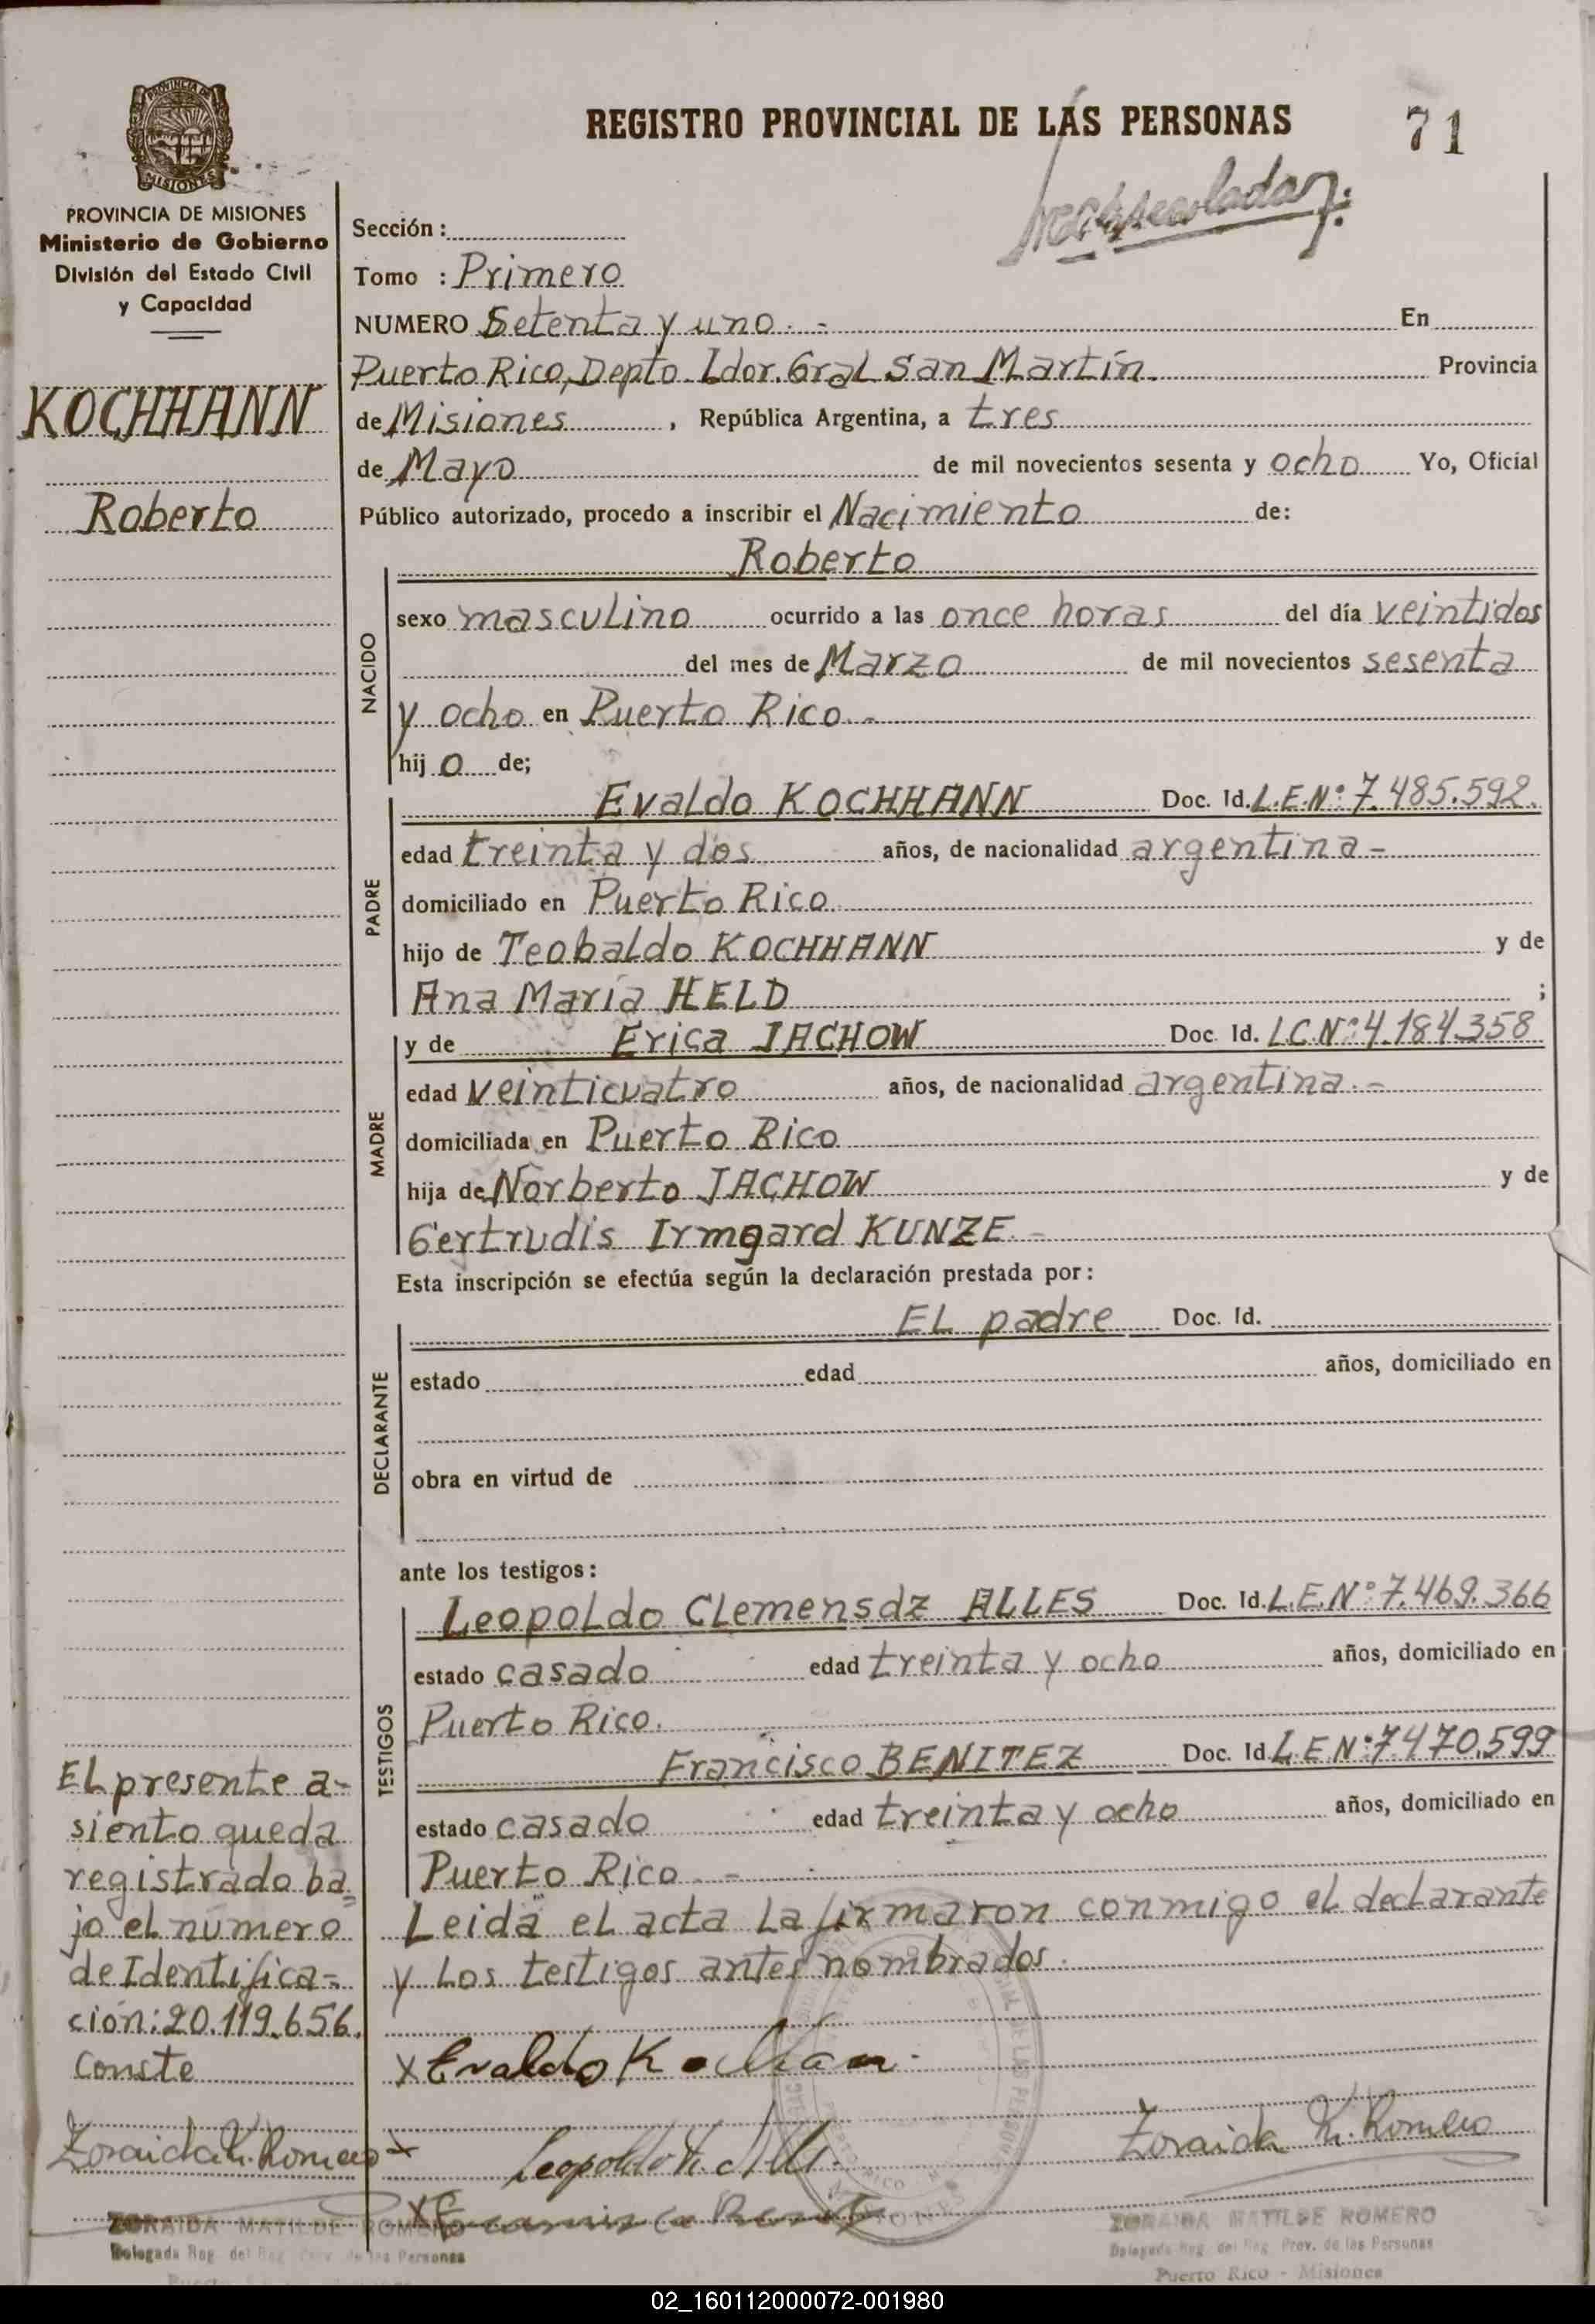 REGISTRO PROVINCIAL DE LAS PERSONAS
71
PROVINCIA DE MISIONES
PROVINCIA DE MISIONES
Ministerio de Gobierno
División del Estado Civil
y Capacidad
KOCHHANN
Roberto
Sección :
Tomo : Primero
NUMERO Setenta y uno. - En
Puerto Rico, Depto. Ldor. Gral San Martín. Provincia
de Misiones , República Argentina, a tres
de Mayo de mil novecientos sesenta y ocho Yo, Oficial
Público autorizado, procedo a inscribir el Nacimiento de:
NACIDO
Roberto
sexo masculino ocurrido a las once horas del día veintidos
del mes de Marzo de mil novecientos sesenta
y ocho en Puerto Rico. -
hij o de;
PADRE
Evaldo KOCHHANN Doc. Id. L.E.Nº 7.485.592.
edad treinta y dos años, de nacionalidad argentina -
domiciliado en Puerto Rico.
hijo de Teobaldo KOCHHANN y de
Ana María HELD ;
MADRE
y de Erica JACHOW Doc. Id. L.C.Nº 4.184.358
edad veinticuatro años, de nacionalidad argentina. -
domiciliada en Puerto Rico
hija de Norberto JACHOW y de
Gertrudis Irmgard KUNZE. -
Esta inscripción se efectúa según la declaración prestada por :
DECLARANTE
EL padre Doc. Id.
estado edad años, domiciliado en
obra en virtud de
ante los testigos :
TESTIGOS
Leopoldo Clemensdz ALLES Doc. Id. L.E.Nº 7.469.366
estado casado edad treinta y ocho años, domiciliado en
Puerto Rico.
Francisco BENITEZ Doc. Id. L.E.Nº 7.470.599
estado casado edad treinta y ocho años, domiciliado en
Puerto Rico. -
Leida el acta la firmaron conmigo el declarante
y los testigos antes nombrados.
EL presente a-
siento queda
registrado ba=
jo el número
de Identifica-
ción: 20.119.656.
Conste
x Evaldo Kochhan
Zoraida M. Romero
x Leopoldo
Zoraida M. Romero
x Francisco Benitez
ZORAIDA MATILDE ROMERO
Delegada Reg. del Reg. Prov. de las Personas
Puerto
ZORAIDA MATILDE ROMERO
Delegada Reg. del Reg. Prov. de las Personas
Puerto Rico - Misiones
02_160112000072-001980